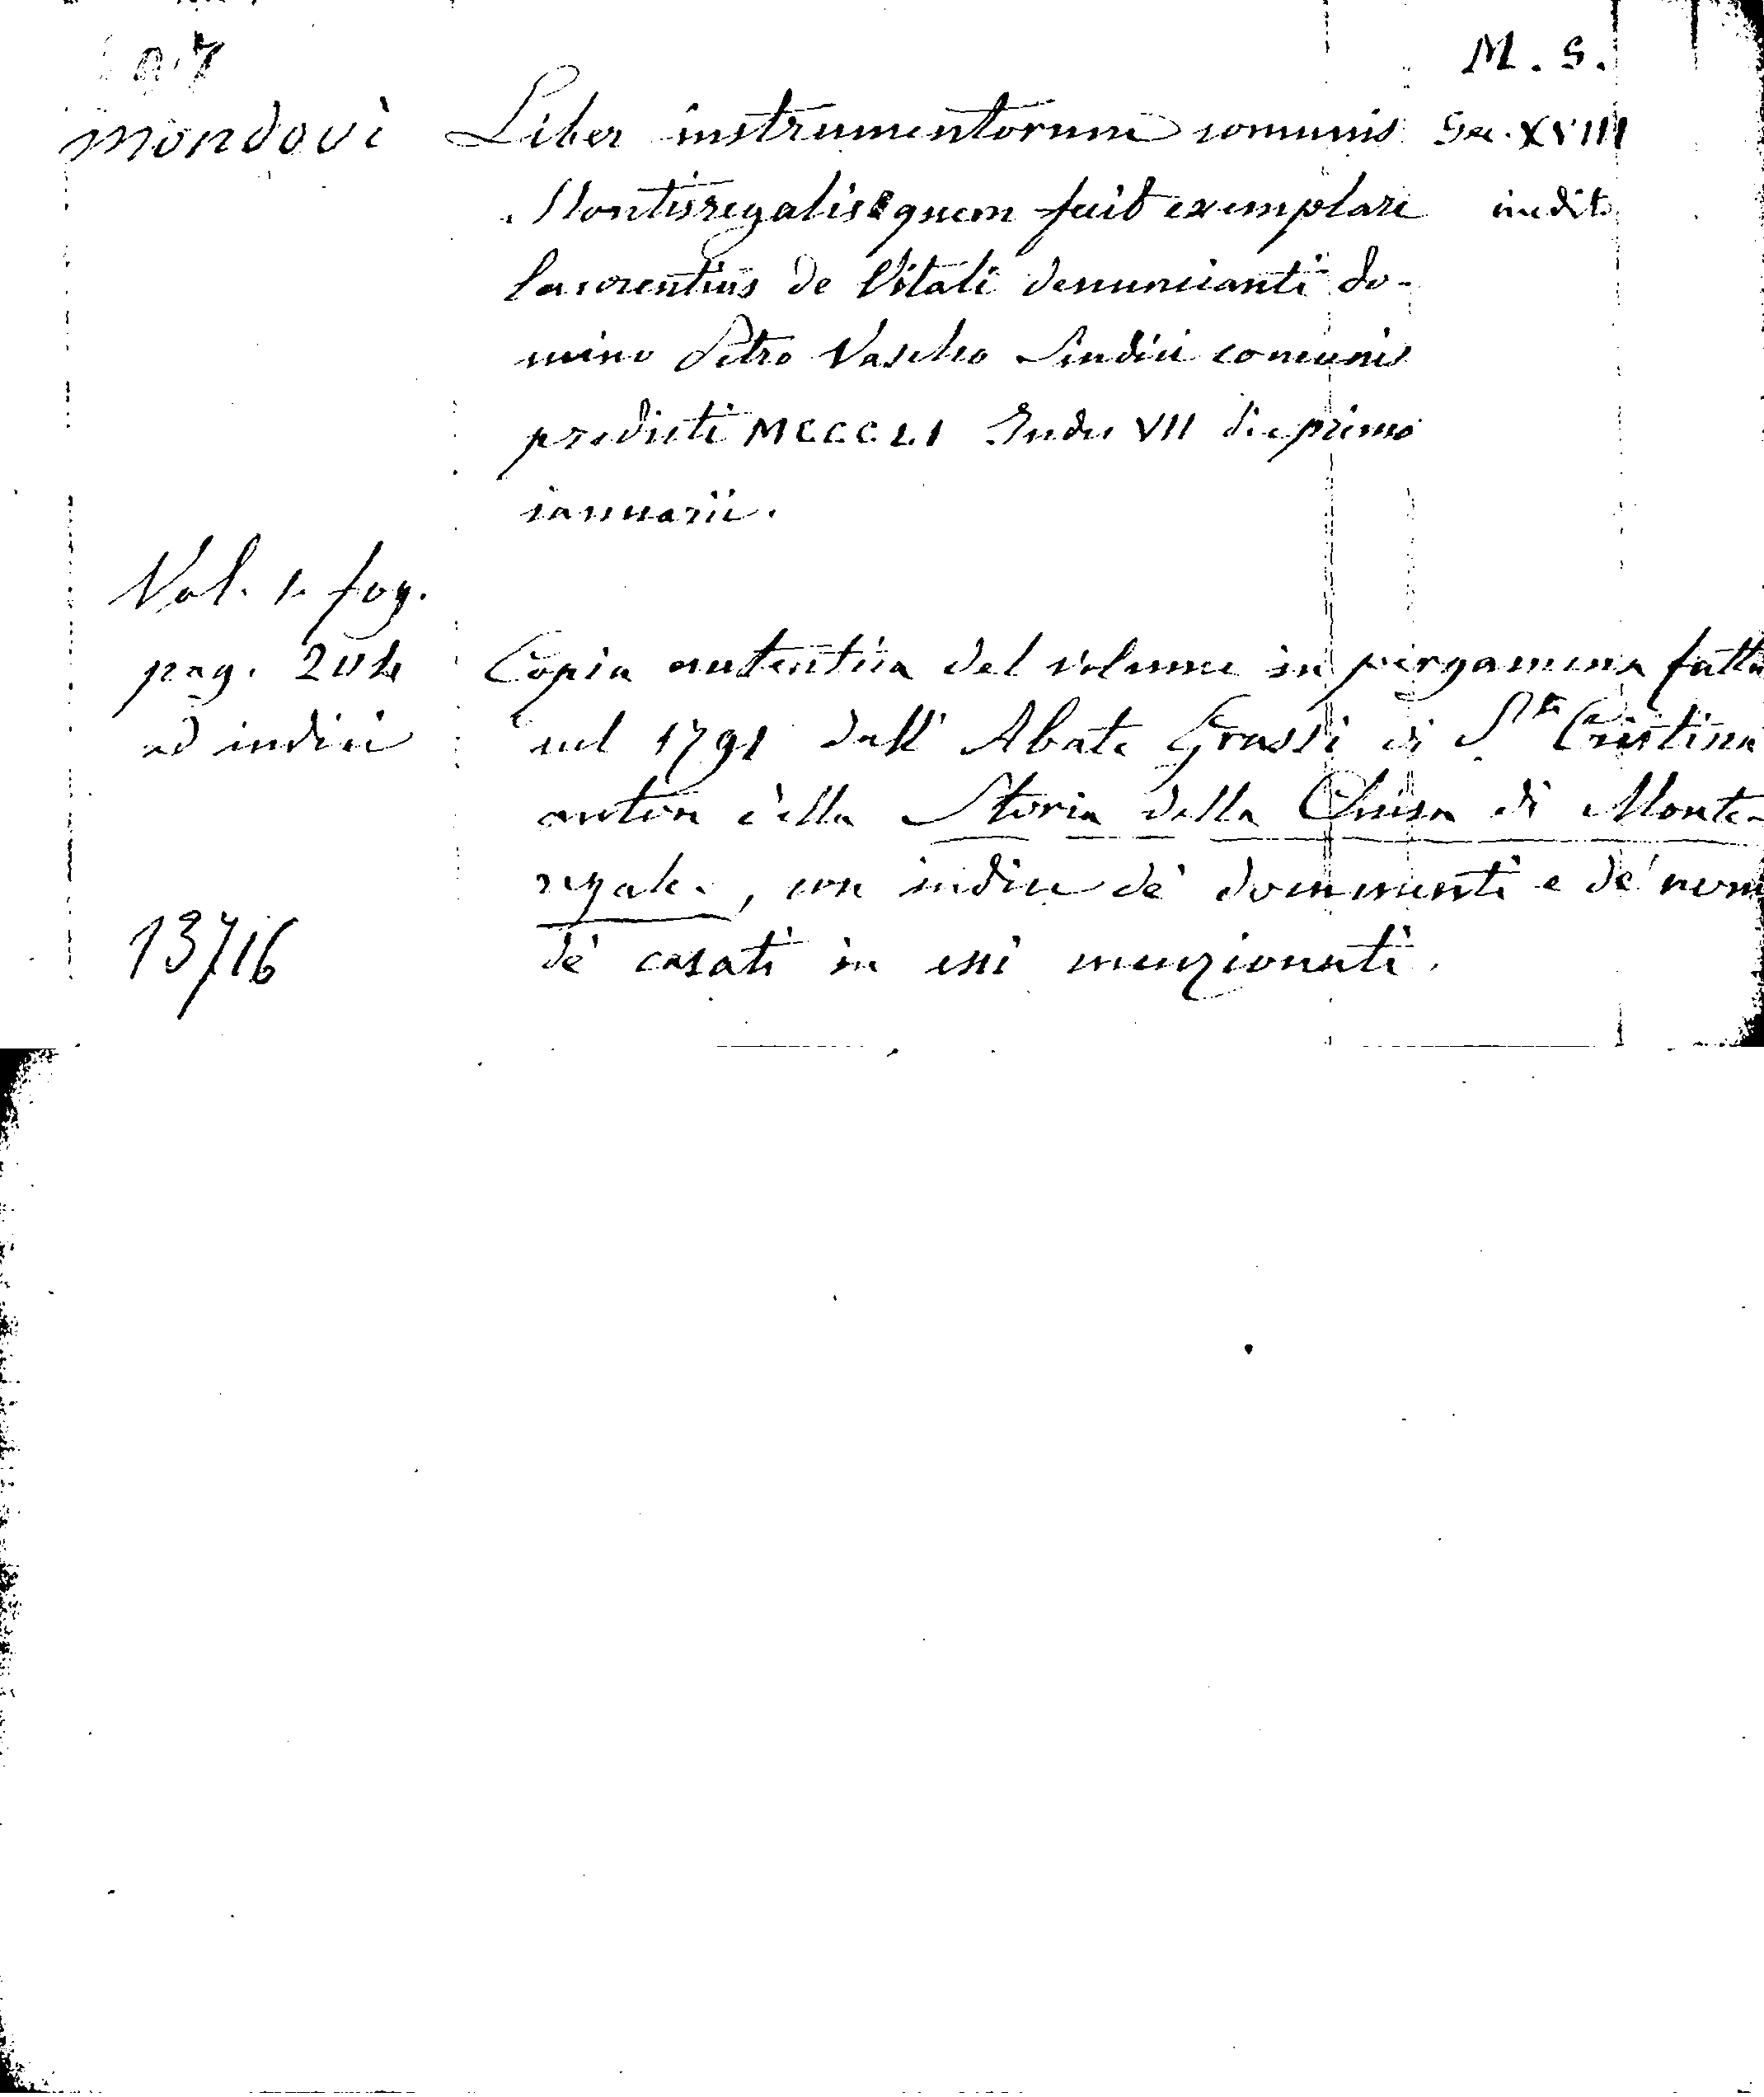 M. S.
Mondovì Liber instrumentorum comunis Sec. XVIII
Montisregalis quem fecit exemplare inedito
Laurentius de Vitali denuncianti do-
mino Petro Vascho Sindici comunis
predicti MCCCLI Indic VII die primo
ianuarii.
Vol. 1. fog.
pag. 204 Copia autentica del volume in pergamena fatta
ed indici nel 1791 dall' Abate Grassi di Sta Cristina
autore della Storia della Chiesa di Monte-
regale, con indice de' documenti e de' nomi
13716 de' casati in essi menzionati.